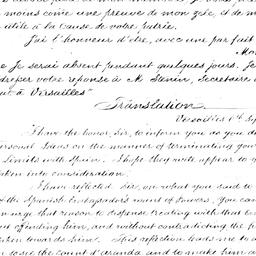 moins comme une preuve de mon zèle, et de m
utile à la cause de votre patrie.
J'ai l'honneur d'être, avec une par fait
Mon
Je serai absent pendant quelques jours. Je
adresser votre réponse à M Stenin, Secretaire
à Versailles"
Translation.
Versailles 6th Se
I have the honor, Sir, to inform you as you de
personal ideas on the manner of terminating your
Limits with Spain. I hope they will appear to y
taken into consideration.
I have reflected Sir, on what you said to
the Spanish Embassadors want of Powers. You can
urge that reason to dispense treating with that
out offending him, and without contradicting the
taken towards him. This reflection leads me to a
the count d'Aranda and to make him a